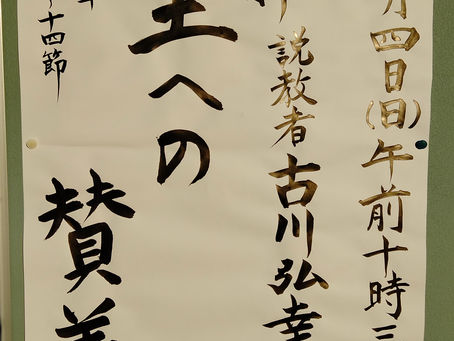 月四日(日)午前十時三
説教者 古川弘幸
主への
賛美
十四節